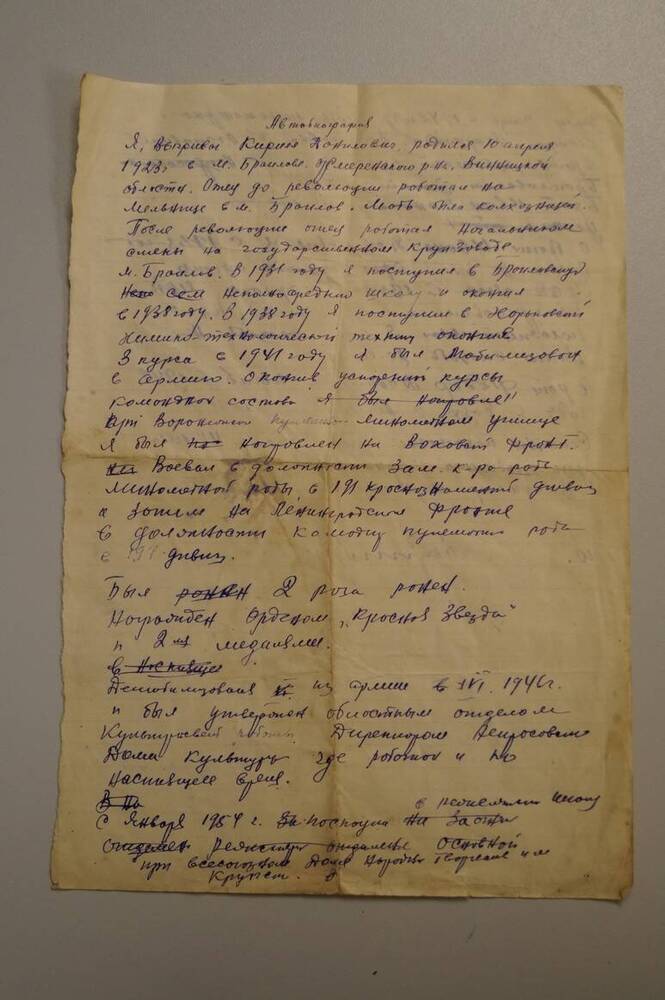 Автобиография
Я, Кирилл Данилович, родился 10 апреля
1923г в м. Браилове Жмеренского р-на. Винницкой
области. Отец до революции работал на
мельнице в м. Браилов. Мать была колхозницей.
После революции отец работал начальником
смены на государственном Крупзаводе
м. Браилов. В 1931 году я поступил в Браиловскую
неполносреднюю школу и окончил
в 1938 году. В 1938 году я поступил в Харьковский
Химико-технологический техникум окончив
3 курса в 1941 году я был мобилизован
в армию. Окончив курсы
командног состава я был направлен
при минометном училище
я был направлен на Волховский фронт.
Воевал в должности Зам. к-ра роты
минометной роты, в 191 краснознаменной дивиз
а затем на Ленинградском фронте
в должности командир пулеметной роты
в 191 дивиз.
Был ранен 2 раза ранен.
Награжден Орденом „Красной Звезда"
и 2-мя медалями.
в настоящее
Демобилизован из армии в IVI. 1946г.
и был утвержден областным отделом
Культпросвет работы Директором
Дома Культуры где работаю и по
настоящее время.
В на
с Января 1954 г. поступил на заочн
в режиссерскую школу
отделен режиссер отделение основной
при всесоюзном Доме народн творчества им
Крупск.